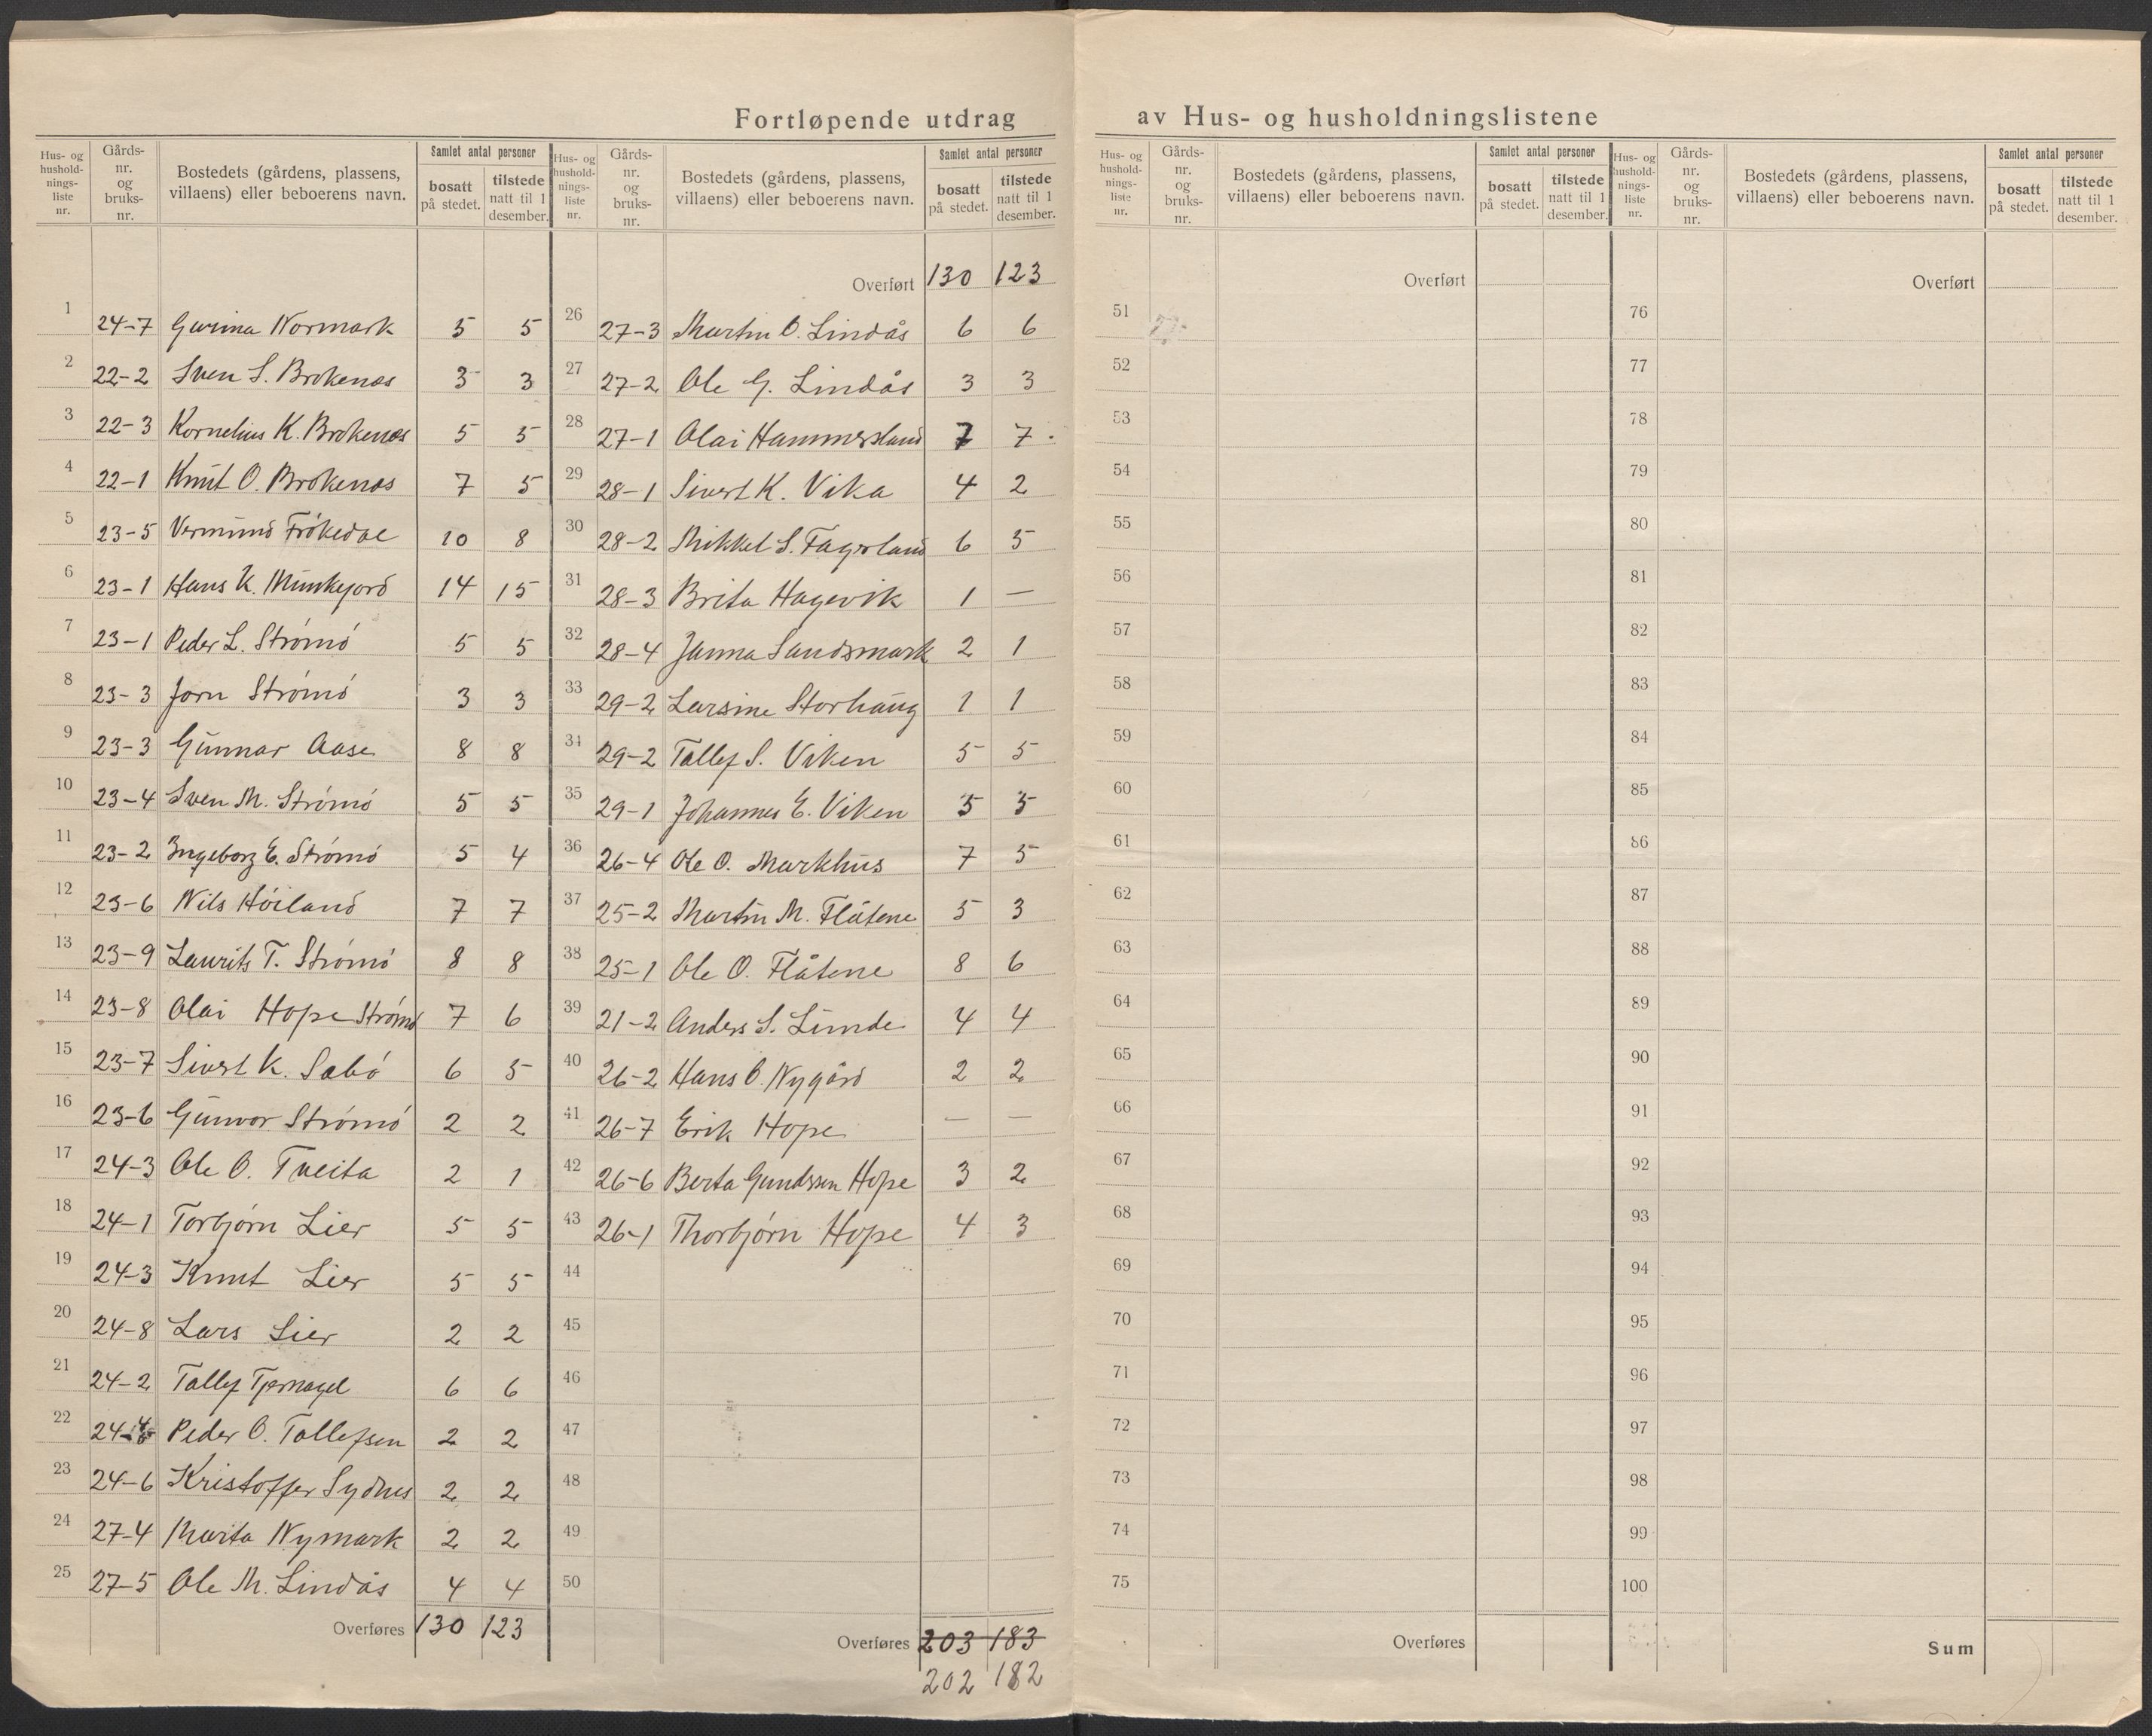 Fortløpende utdrag av Hus- og husholdningslistene
Hus- og hushold-nings-liste nr. | Gårds-nr. og bruks-nr. | Bostedets (gårdens, plassens, villaens) eller beboerens navn. | Samlet antal personer | bosatt på stedet. | tilstede natt til 1 desember.
1 24-7 Gurina Normark 5 5
2 22-2 Sven S. Brokenes 3 3
3 22-3 Kornelius K. Brokenes 5 5
4 22-1 Knut O. Brokenes 7 5
5 23-5 Vermund Frökedal 10 8
6 23-1 Hans K. Munkejord 14 15
7 23-1 Peder L. Strömö 5 5
8 23-3 Jorn Strömö 3 3
9 23-3 Gunnar Aase 8 8
10 23-4 Sven M. Strömö 5 5
11 23-2 Ingeborg E. Strömö 5 4
12 23-6 Nils Höiland 7 7
13 23-9 Laurits T. Strömö 8 8
14 23-8 Olai Hope Strömö 7 6
15 23-7 Sivert K. Sabö 6 5
16 23-6 Gunvor Strömö 2 2
17 24-3 Ole O. Tveita 2 1
18 24-1 Torbjörn Lier 5 5
19 24-3 Knut Lier 5 5
20 24-8 Lars Lier 2 2
21 24-2 Tollef Tjernagel 6 6
22 24-4 Peder O. Tollefsen 2 2
23 24-6 Kristoffer Sydnes 2 2
24 27-4 Marta Nymark 2 2
25 27-5 Ole M. Lindås 4 4
Overføres 130 123
Hus- og hushold-nings-liste nr. | Gårds-nr. og bruks-nr. | Bostedets (gårdens, plassens, villaens) eller beboerens navn. | Samlet antal personer | bosatt på stedet. | tilstede natt til 1 desember.
Overført 130 123
26 27-3 Martin O. Lindås 6 6
27 27-2 Ole G. Lindås 3 3
28 27-1 Olai Hammersland 7 7
29 28-1 Sivert K. Vika 4 2
30 28-2 Mikkel S. Fagerland 6 5
31 28-3 Brita Hagevik 1 —
32 28-4 Janna Sandsmark 2 1
33 29-2 Larsine Storhaug 1 1
34 29-2 Tollef S. Viken 5 5
35 29-1 Johannes E. Viken 5 5
36 26-4 Ole O. Markhus 7 5
37 25-2 Martin M. Flåtene 5 3
38 25-1 Ole O. Flåtene 8 6
39 21-2 Anders S. Lunde 4 4
40 26-2 Hans O. Nygård 2 2
41 26-7 Erik Hope — —
42 26-6 Berta Gundssen Hope 3 2
43 26-1 Thorbjörn Hope 4 3
44
45
46
47
48
49
50
Overføres 203 183
202 182
Hus- og hushold-nings-liste nr. | Gårds-nr. og bruks-nr. | Bostedets (gårdens, plassens, villaens) eller beboerens navn. | Samlet antal personer | bosatt på stedet. | tilstede natt til 1 desember.
Overført
51
52
53
54
55
56
57
58
59
60
61
62
63
64
65
66
67
68
69
70
71
72
73
74
75
Overføres
Hus- og hushold-nings-liste nr. | Gårds-nr. og bruks-nr. | Bostedets (gårdens, plassens, villaens) eller beboerens navn. | Samlet antal personer | bosatt på stedet. | tilstede natt til 1 desember.
Overført
76
77
78
79
80
81
82
83
84
85
86
87
88
89
90
91
92
93
94
95
96
97
98
99
100
Sum